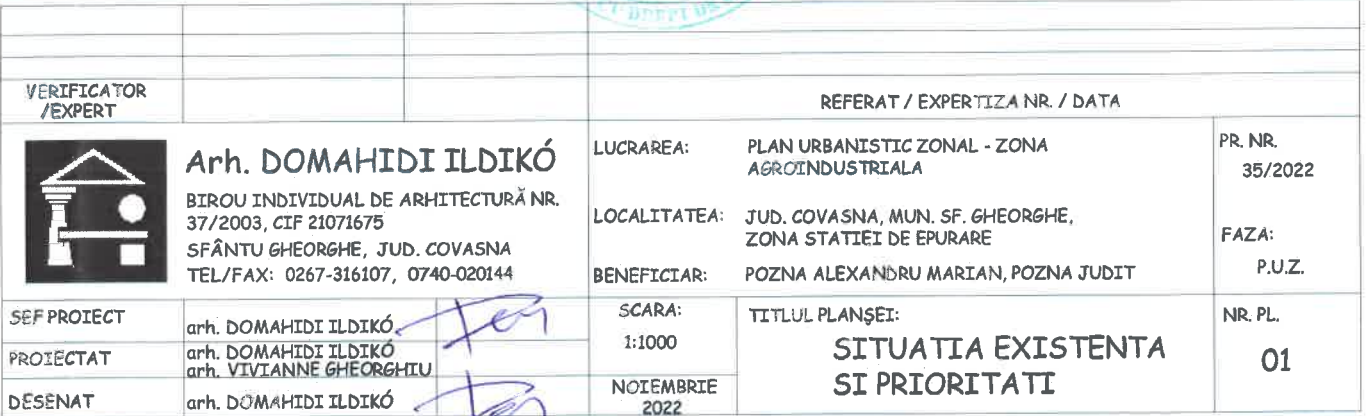 VERIFICATOR
/EXPERT
REFERAT / EXPERTIZA NR. / DATA
Arh. DOMAHIDI ILDIKÓ
BIROU INDIVIDUAL DE ARHITECTURĂ NR.
37/2003, CIF 21071675
SFÂNTU GHEORGHE, JUD. COVASNA
TEL/FAX: 0267-316107, 0740-020144
LUCRAREA:
PLAN URBANISTIC ZONAL - ZONA
AGROINDUSTRIALA
PR. NR.
35/2022
LOCALITATEA:
JUD. COVASNA, MUN. SF. GHEORGHE,
ZONA STATIEI DE EPURARE
FAZA:
P.U.Z.
BENEFICIAR:
POZNA ALEXANDRU MARIAN, POZNA JUDIT
SEF PROIECT
arh. DOMAHIDI ILDIKÓ
PROIECTAT
arh. DOMAHIDI ILDIKÓ
arh. VIVIANNE GHEORGHIU
DESENAT
arh. DOMAHIDI ILDIKÓ
SCARA:
1:1000
NOIEMBRIE
2022
TITLUL PLANŞEI:
SITUATIA EXISTENTA
SI PRIORITATI
NR. PL.
01